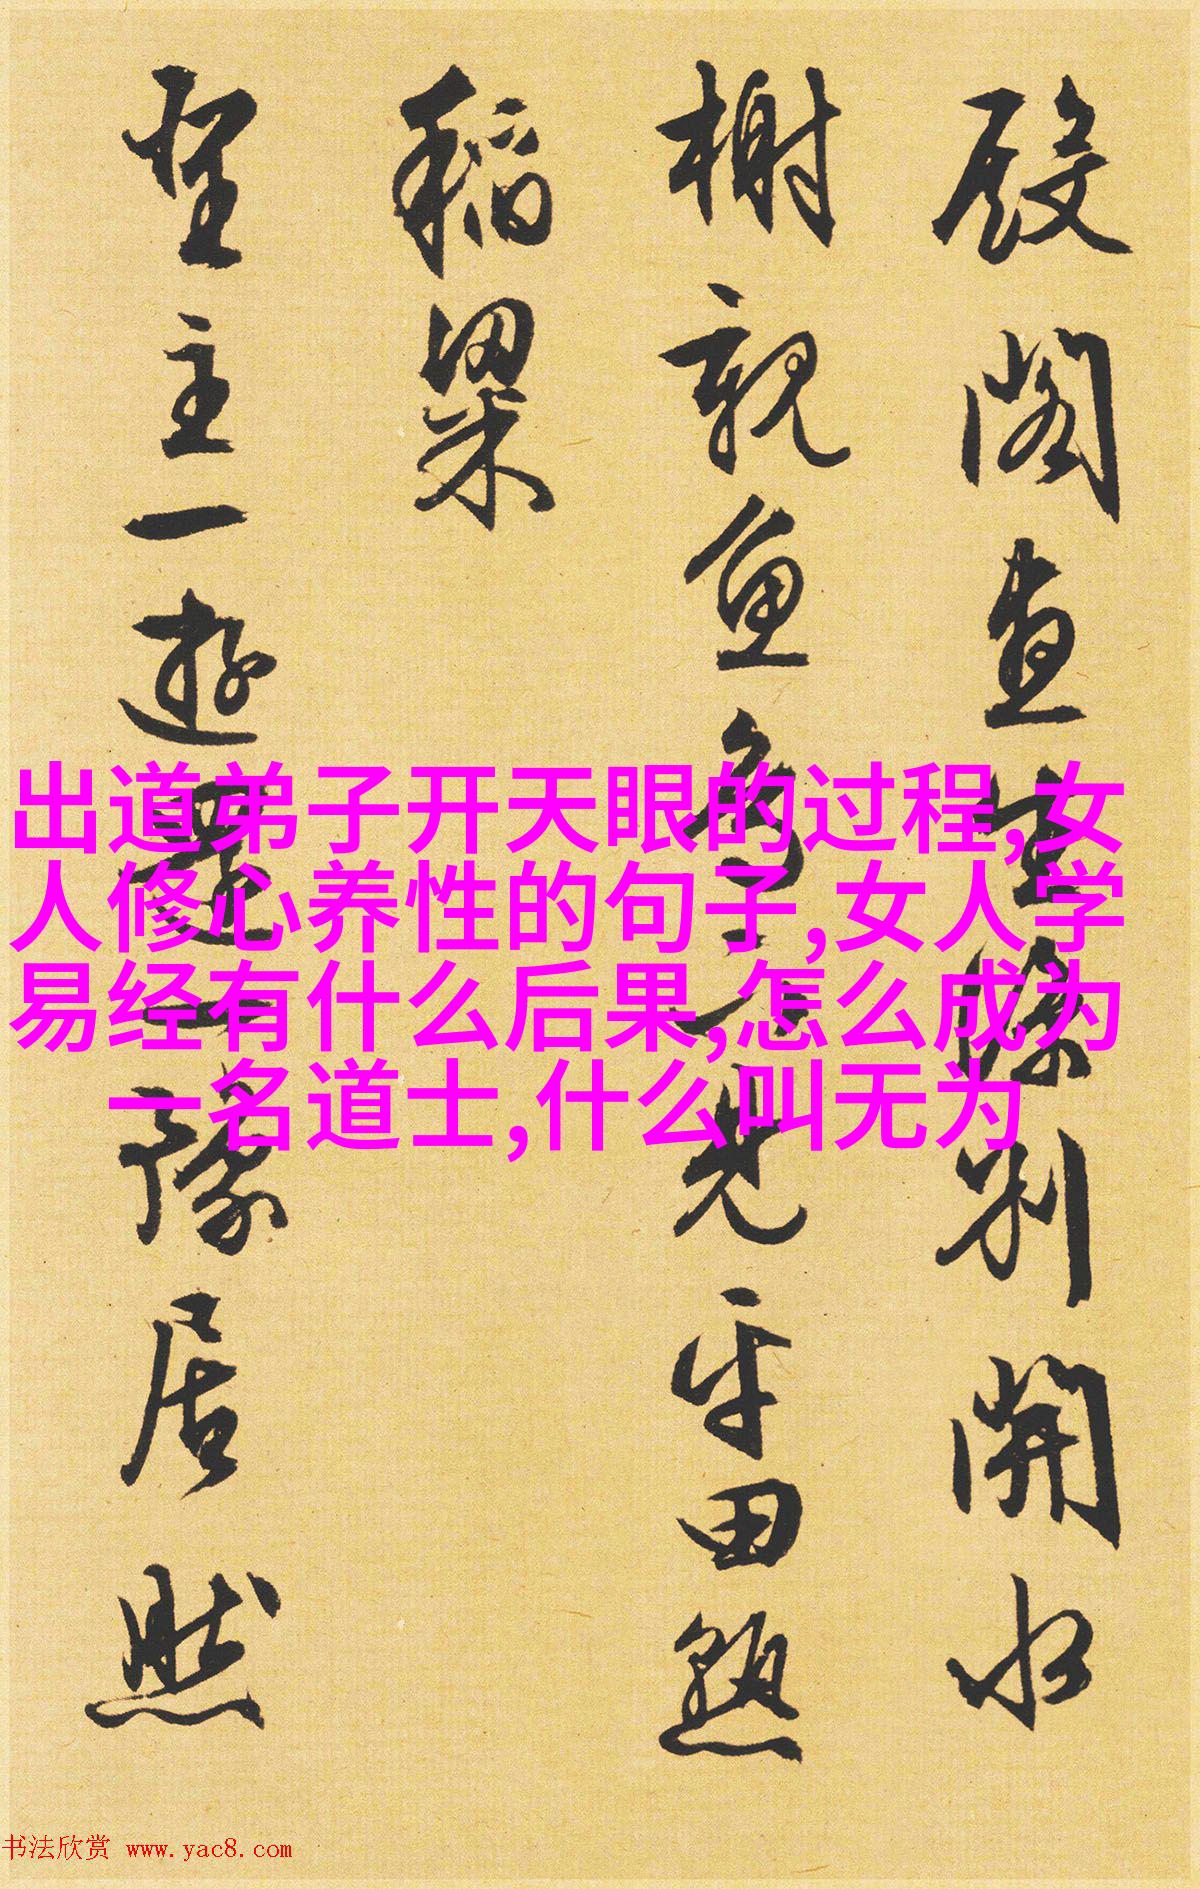 殿閣直餘別開水
榭觀魚鳥兼見平田熟
稻粱
聖主一遊還一豫居然
出道弟子开天眼的过程,女
人修心养性的句子,女人学
易经有什么后果,怎么成为
一名道士,什么叫无为
书法欣赏 www.yac8.com